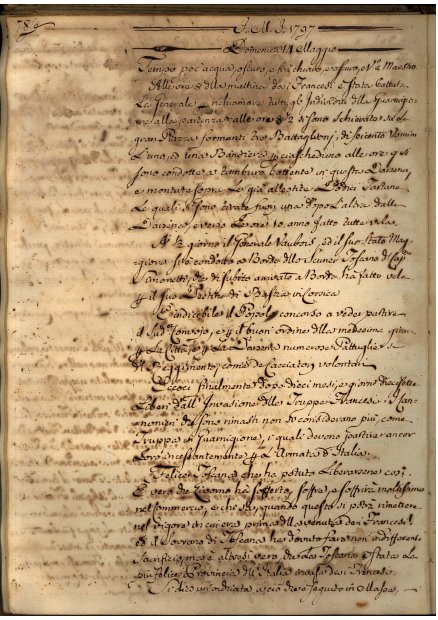 I. M. I. 1797
Domenica 14 Maggio
Tempo poc'acqua, oscuro, e chiaro, e oscuro, e Maestro
Alle ore 5 della mattina dai Francesi è Stata battuta
La Generale richiamare tutti gli Individui della Guarnigione
alla partenza alle ore 8½ si sono Schierati su la
gran Piazza formanti tre Battaglioni, di seicento Uomini
l'uno, ed una Bandiera ciascheduno alle ore 9 si
sono condotti a tamburo battente in questa Darsena,
e montati sopra Le già allestite Tartane
Le quali si sono tirate fuori una dopo L'altra dalla
Darsena, e verso Le ore 10 anno fatto tutte vela.
A ½ giorno il Generale Vaubois, ed il suo Stato Mag
giore si è condotto a Bordo dello Toscano di Cap.
Simonetti, che di subito arrivato a Bordo ha fatto vela
il suo Destino di Bastia in Corsica
indicibile il Popolo concorso a veder partire
il Sud.o Convojo, e il buon ordine della medesima
La Città, e La Darsena numerose Pattuglie si
di Reggimento, come di Cacciatori volontari
Eccoci finalmente dopo dieci mesi, e giorni diecisette
Liberi dall'Invasione delle Truppe Francesi. I Can
nonieri che sono rimasti non si considerano più, come
Truppa di Guarnigione, i quali devono partire ancor
Loro incessantemente L'Armata d'Italia.
Felice Toscana che ha potuto Liberarsene così.
È vero che Livorno ha sofferto, soffre, e soffrirà moltissimo
nel commercio, e chi sa, quando questo si potrà rimettere
nel vigore in cui era prima della venuta dei Francesi
il Sovrano di Toscana ha dovuto fare non indifferenti
Sacrifizi, ma è altresì vero che la Toscana è Stata La
più felice Provincia dell'Italia invasa dai Francesi.
Si dice un' ordinata a ciò che è seguito in Massa,